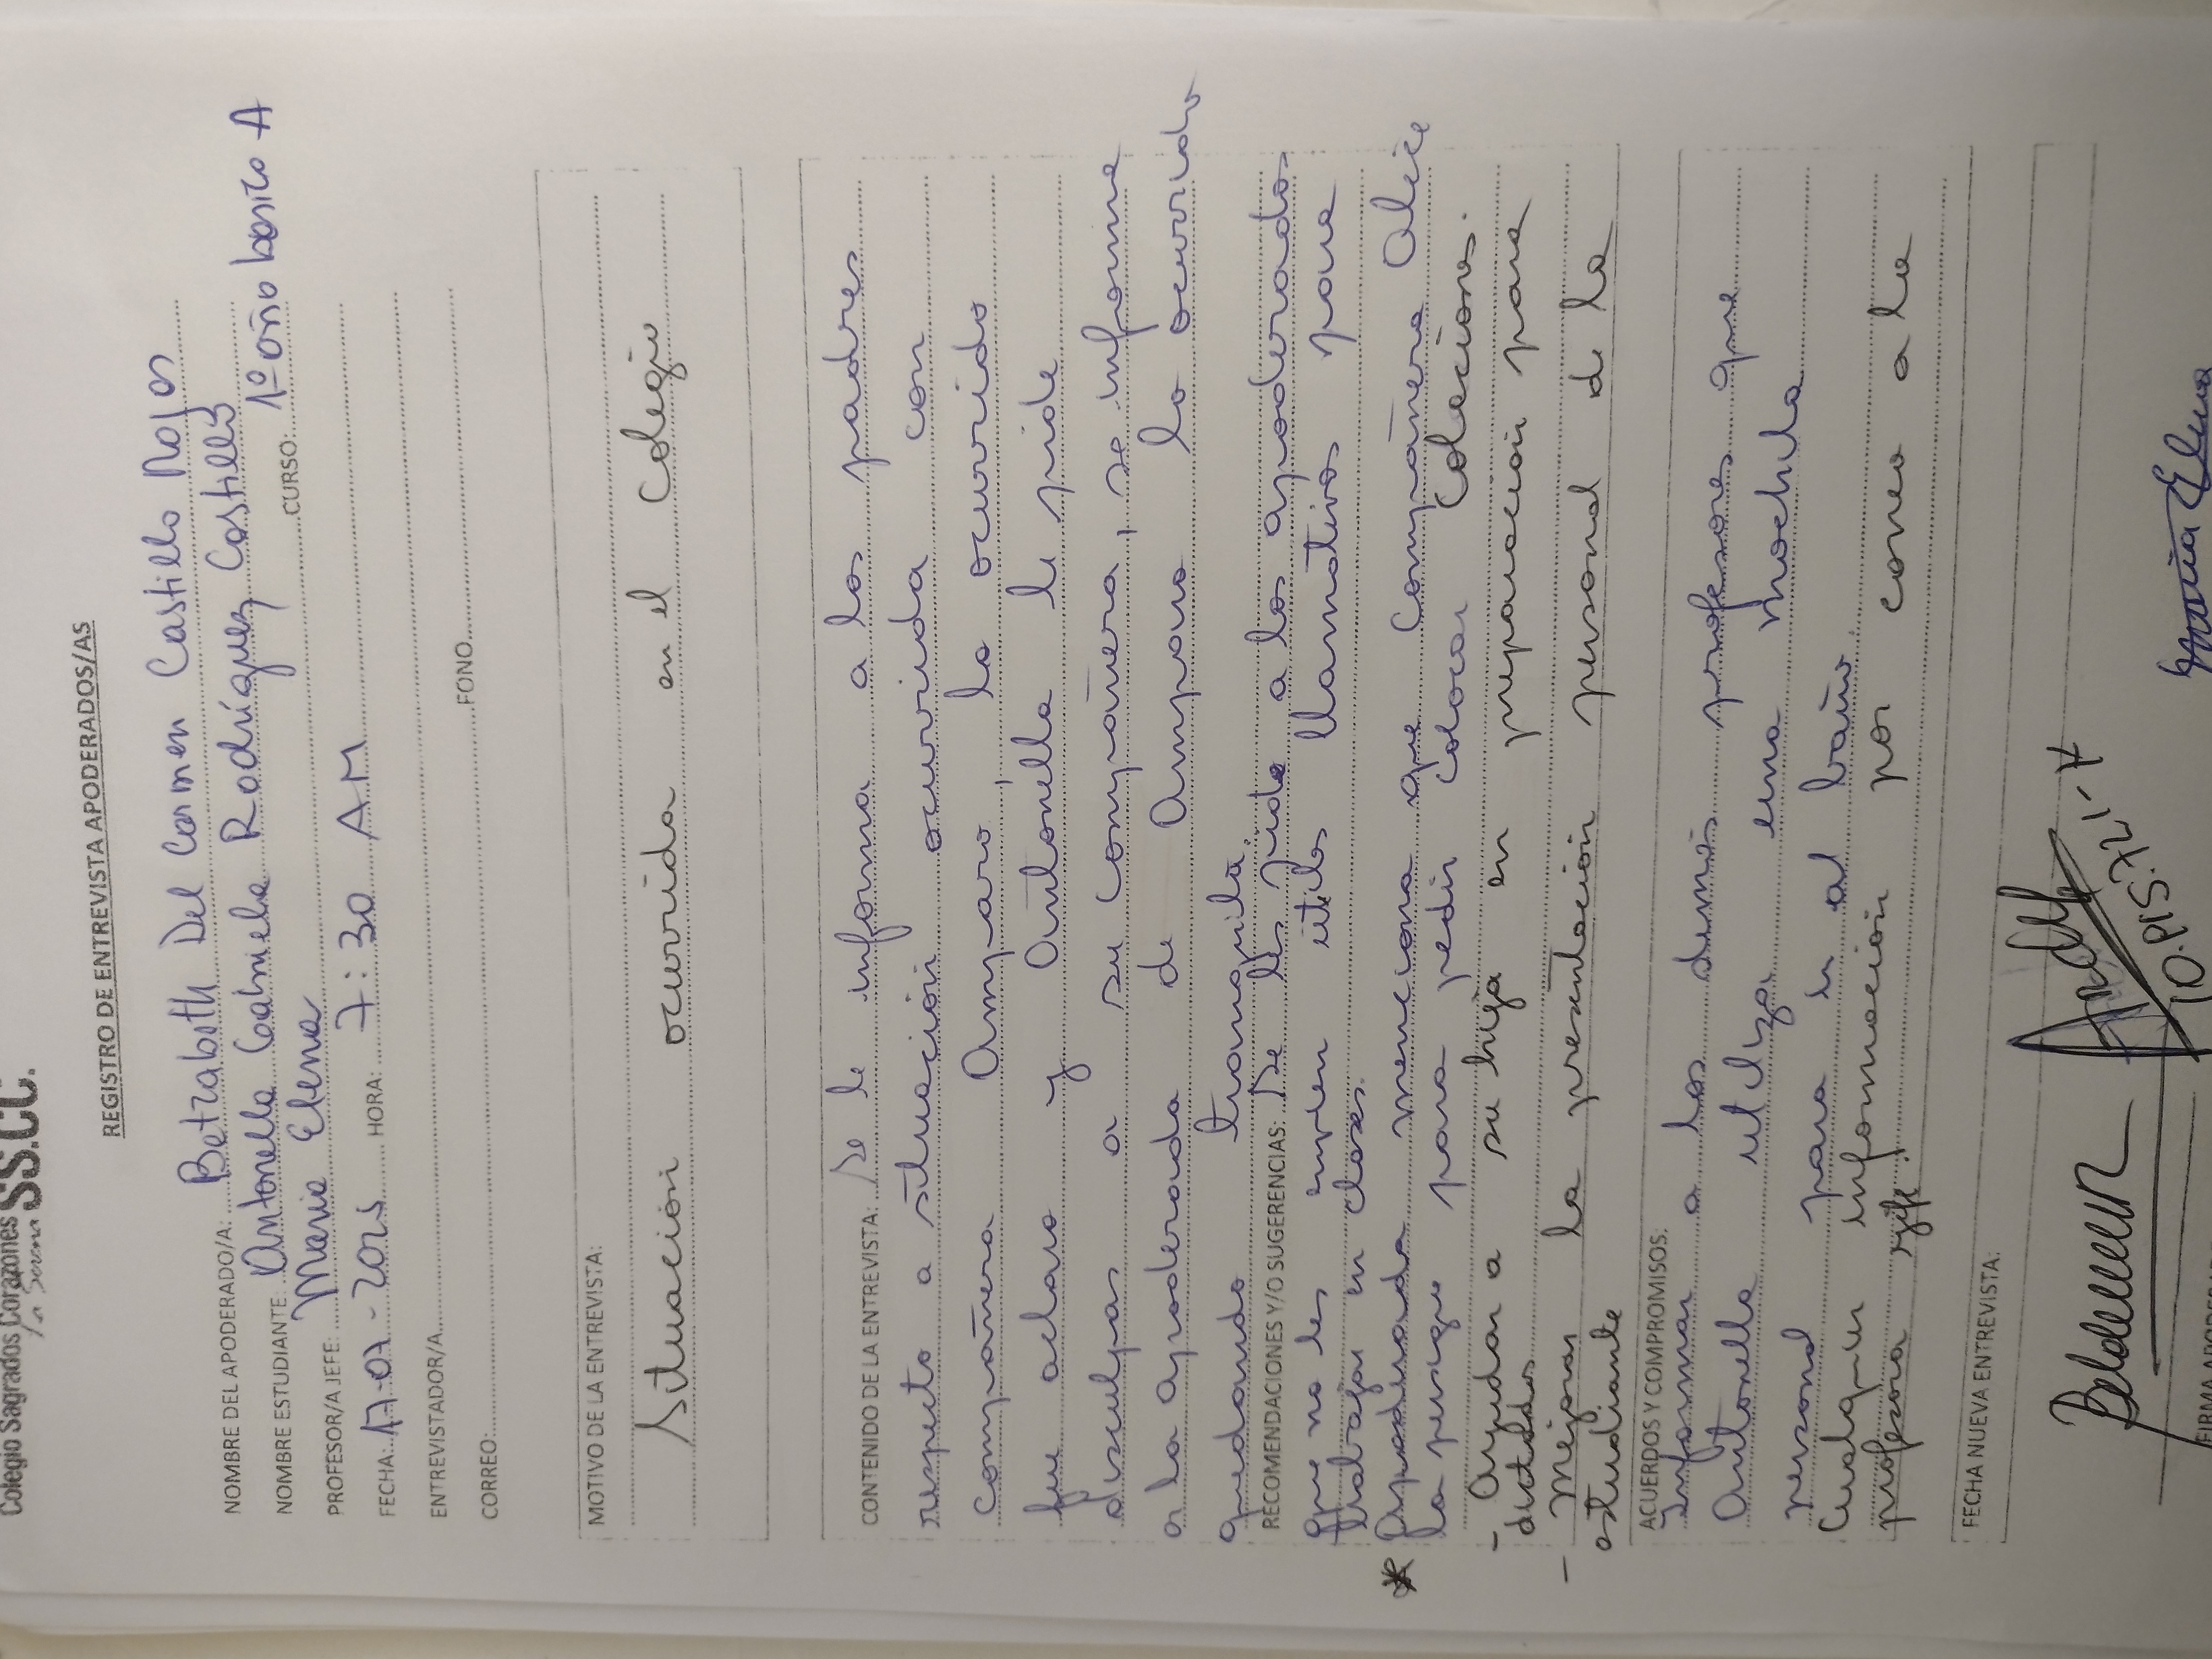 Colegio Sagrados Corazones SS.CC.
La Serena
REGISTRO DE ENTREVISTA APODERADOS/AS
NOMBRE DEL APODERADO/A: Betzabeth Del Carmen Castillo Rojas
NOMBRE ESTUDIANTE: Antonella Gabriela Rodríguez Castillo CURSO: 1º año basico A
PROFESOR/A JEFE: Maria Elena
FECHA: 17-07-2025 HORA: 7:30 AM
ENTREVISTADOR/A
CORREO: FONO
MOTIVO DE LA ENTREVISTA:
Situación ocurrida en el Colegio
CONTENIDO DE LA ENTREVISTA: Se le informa a los padres
respecto a situación ocurrida con
compañera Amparo, lo ocurrido
fue aclaro y Antonella le pide
disculpas a su compañera, se informa
a la apoderada de Amparo lo ocurrido
quedando tranquila.
RECOMENDACIONES Y/O SUGERENCIAS: Se les pide a los apoderados
que no les envien útiles llamativos para
trabajar en clases.
* Apoderada menciona que compañera Alice
la persigue para pedir colocar colaciones.
- Ayudar a su hija en preparación para
dictados
- Mejorar la presentación personal de la
estudiante
ACUERDOS Y COMPROMISOS:
Informar a los demás profesores que
Antonella utiliza una mochila
personal para ir al baño.
Cualquier información por correo a la
profesora jefe.
FECHA NUEVA ENTREVISTA:
María Elena